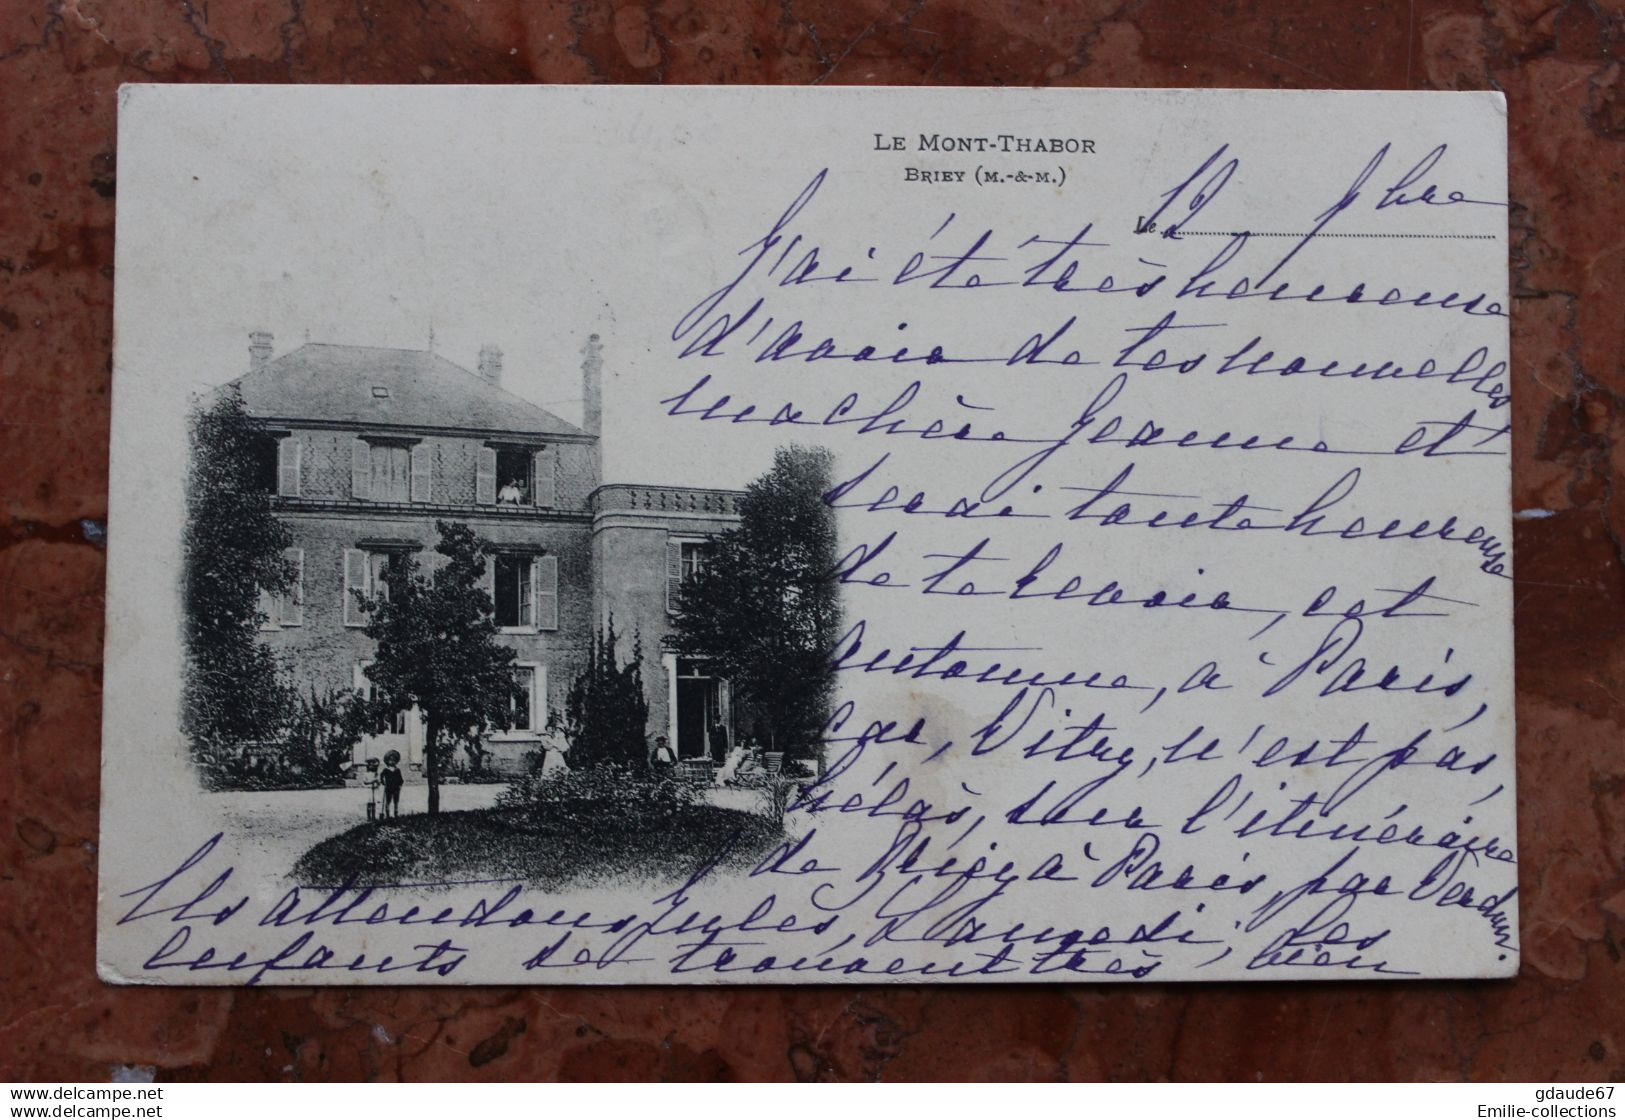 LE MONT-THABOR
BRIEY (M.-&-M.)
Le 12 7bre
J'ai été très heureuse
d'avoir de tes nouvelles
ma chère Jeanne et
serai toute heureuse
de te revoir, cet
automne, à Paris,
car, Vitry, n'est pas,
hélas, sur l'itinéraire
de Briey à Paris, par Verdun.
Ns attendons Jules, Samedi; Les
enfants se trouvent très bien
Emilie-collections
gdaude67
Emilie-collections